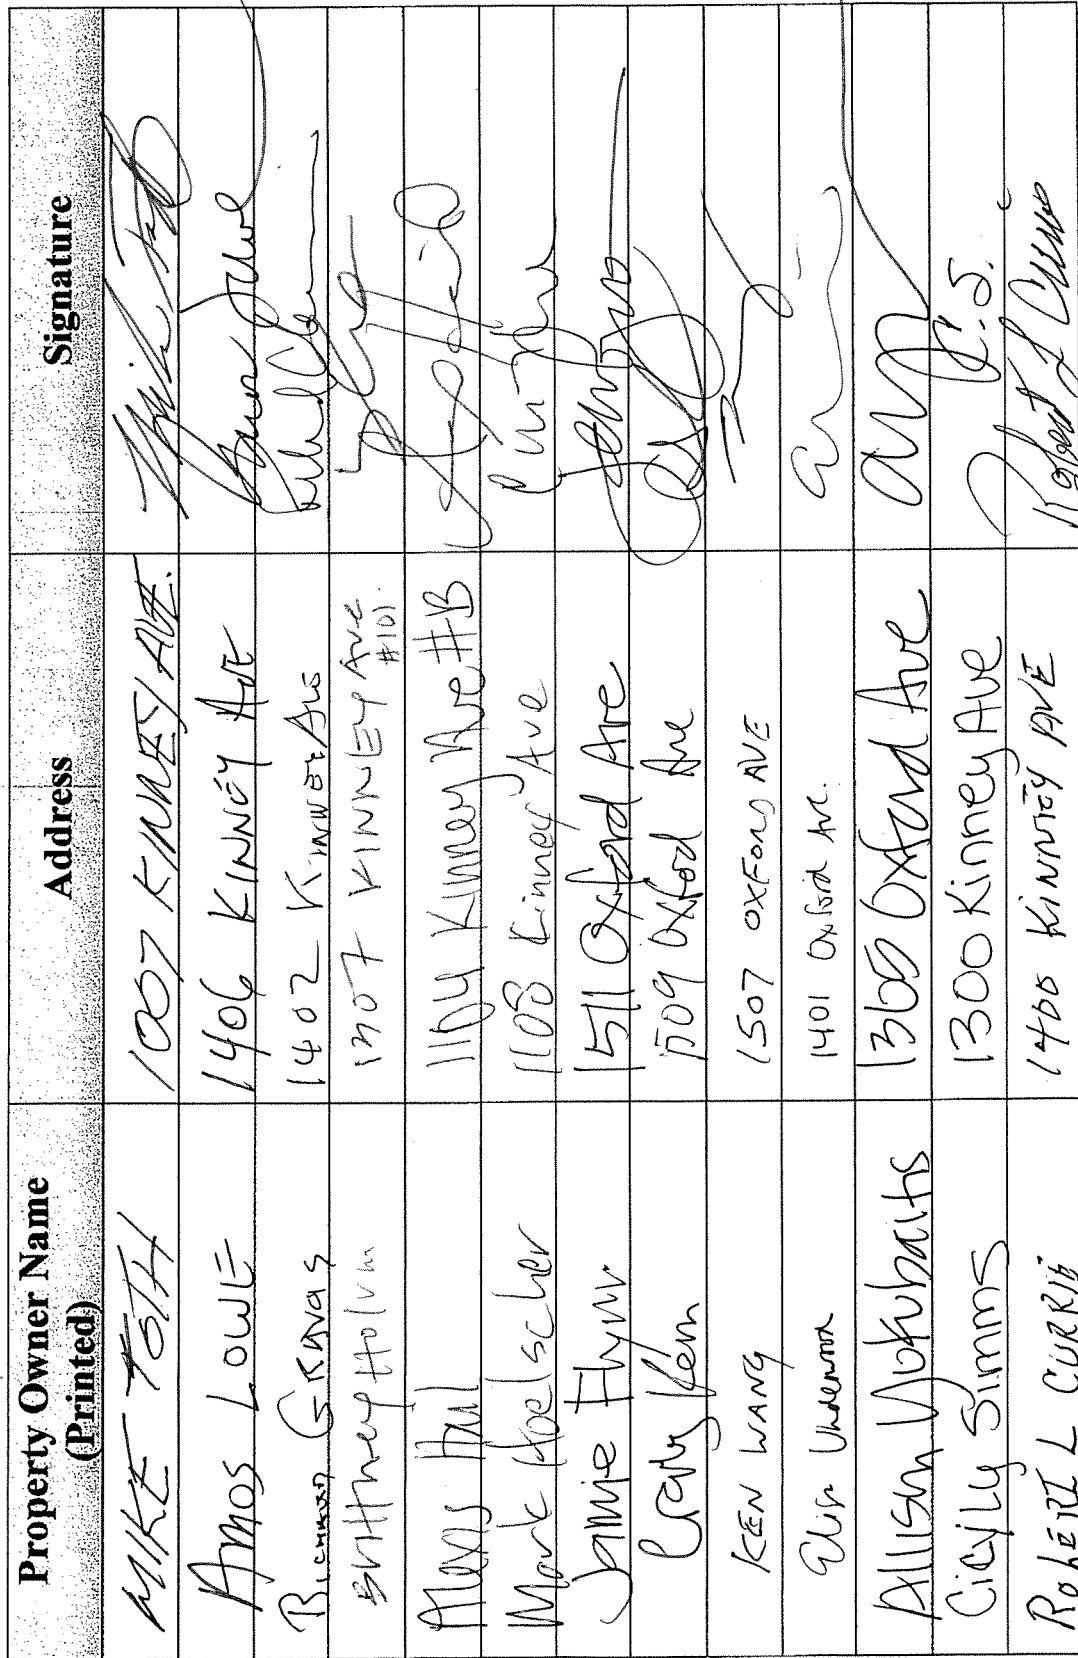 Property Owner Name (Printed) Address Signature
MIKE TOTH 1007 KINNEY AVE.
Amos LOWE 1406 KINNEY AVE
1402 KINNEY Ave
Brittney Holum 1307 KINNEY Ave #101
Alexis Kinney Ave #B
Mark Hoelscher 1108 Kinney Ave
Jamie Flynn 1511 Oxford Ave
Craig Kern 1509 Oxford Ave
KEN WANG 1507 OXFORD AVE
Elisa Underwood 1401 Oxford Ave.
Allison Yokubaitis Oxford Ave
Cicily Simms 1300 Kinney Ave R. S.
Robert L CURRIE 1400 KINNEY AVE Robert L Currie